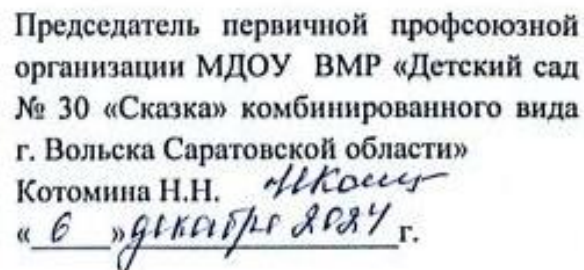 Председатель первичной профсоюзной
организации МДОУ ВМР «Детский сад
№ 30 «Сказка» комбинированного вида
г. Вольска Саратовской области»
Котомина Н.Н.
« 6 » декабря 2024 г.